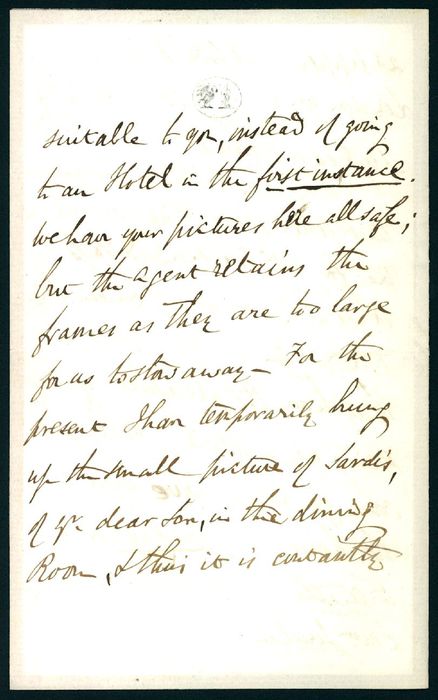 suitable to you, instead of going
to an Hotel in the first instance.
We have your pictures here all safe;
but the agent retains the
frames as they are too large
for us to stow away – For the
present I have temporarily hung
up the small picture of Sardis,
of yr. dear Son, in the dining
Room, & thus it is constantly